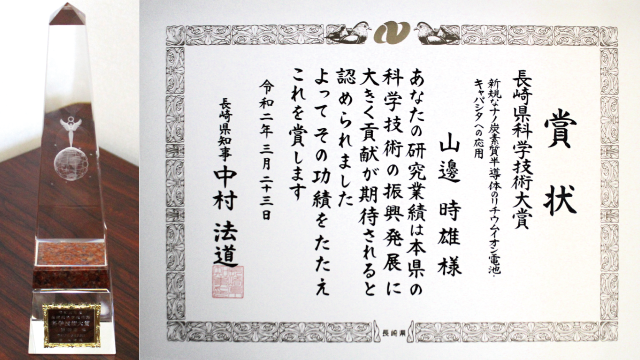 賞状
長崎県科学技術大賞
新規なナノ炭素質半導体のリチウムイオン電池・
キャパシタへの応用
山邊 時雄 様
あなたの研究業績は本県の
科学技術の振興発展に
大きく貢献が期待されると
認められました
よってその功績をたたえ
これを賞します
令和二年三月二十三日
長崎県知事 中村 法道
長崎県